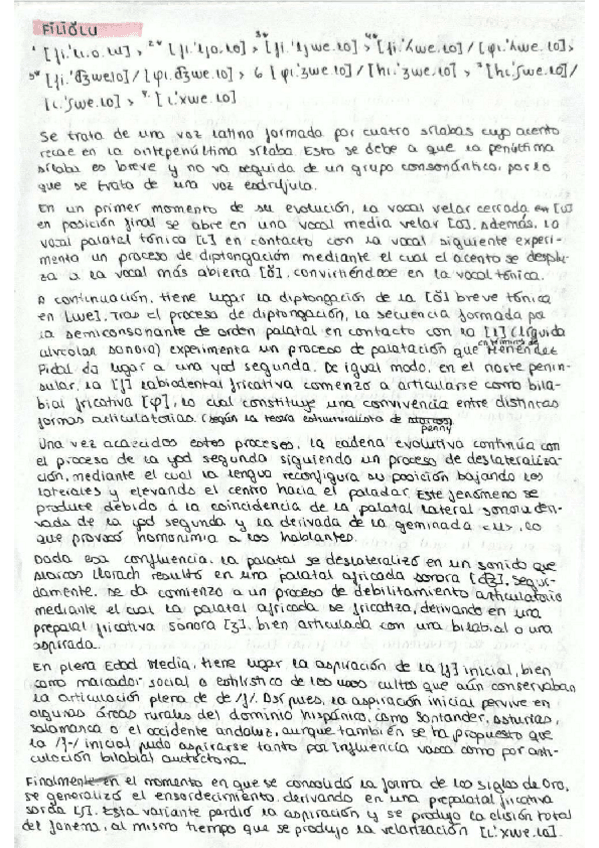 FiliŏLu
1 [fi.'li.o.lu] > 2ª [fi.'ljo.lo] > 3ª [fi.'ljwe.lo] > 4ª [fi.'ʎwe.lo] / [φi.'ʎwe.lo] >
5ª [fi.'d͡ʒwelo] / [φi.d͡ʒwe.lo] > 6 [φi.'ʒwe.lo] / [hi.'ʒwe.lo] > 7 [hi.'ʃwe.lo] /
[i.'ʃwe.lo] > [i.'xwe.lo]
Se trata de una voz latina formada por cuatro sílabas cuyo acento
recae en la antepenúltima sílaba. Esto se debe a que la penúltima
sílaba es breve y no va seguida de un grupo consonántico, por lo
que se trata de una voz esdrújula.
En un primer momento de su evolución, la vocal velar cerrada en [u]
en posición final se abre en una vocal media velar [o]. Además, la
vocal palatal tónica [i] en contacto con la vocal siguiente experi-
menta un proceso de diptongación mediante el cual el acento se despla-
za a la vocal más abierta [ŏ], convirtiéndose en la vocal tónica.
A continuación, tiene lugar la diptongación de la [ŏ] breve tónica
en [we]. Tras el proceso de diptongación, la secuencia formada por
la semiconsonante de orden palatal en contacto con la [l] (líquida
alveolar sonora) experimenta un proceso de palatación que en términos de Menéndez
Pidal da lugar a una yod segunda. De igual modo, en el norte penin-
sular, la [f] labiodental fricativa comenzó a articularse como bila-
bial fricativa [φ], lo cual constituye una convivencia entre distintas
formas articulatorias (según la teoría estructuralista de penny
Una vez acaecidos estos procesos, la cadena evolutiva continúa con
el proceso de la yod segunda siguiendo un proceso de deslateraliza-
ción, mediante el cual la lengua reconfigura su posición bajando los
laterales y elevando el centro hacia el paladar. Este fenómeno se
produce debido a la coincidencia de la palatal lateral sonora deri-
vada de la yod segunda y la derivada de la geminada <ll>, lo
que provocó homonimia a los hablantes.
Dada esa confluencia, la palatal se deslateralizó en un sonido que
Alarcos Llorach resultó en una palatal africada sonora [d͡ʒ]. Segui-
damente, se da comienzo a un proceso de debilitamiento articulatorio
mediante el cual la palatal africada se fricatiza, derivando en una
prepalal fricativa sonora [ʒ], bien articulada con una bilabial o una
aspirada.
En plena Edad Media, tiene lugar la aspiración de la [f] inicial, bien
como marcador social o estilístico de los usos cultos que aún conservaban
la articulación plena de de /f/. Después, la aspiración inicial pervive en
algunas áreas rurales del dominio hispánico, como Santander, Asturias,
Salamanca o el occidente andaluz, aunque también se ha propuesto que
la /f-/ inicial pudo aspirarse tanto por influencia vasca como por arti-
culación bilabial autóctona.
Finalmente en el momento en que se consolidó la forma de los siglos de Oro,
se generalizó el ensordecimiento, derivando en una prepalatal fricativa
sorda [ʃ]. Esta variante perdió la aspiración y se produjo la elisión total
del fonema, al mismo tiempo que se produjo la velarización [i.'xwe.lo].